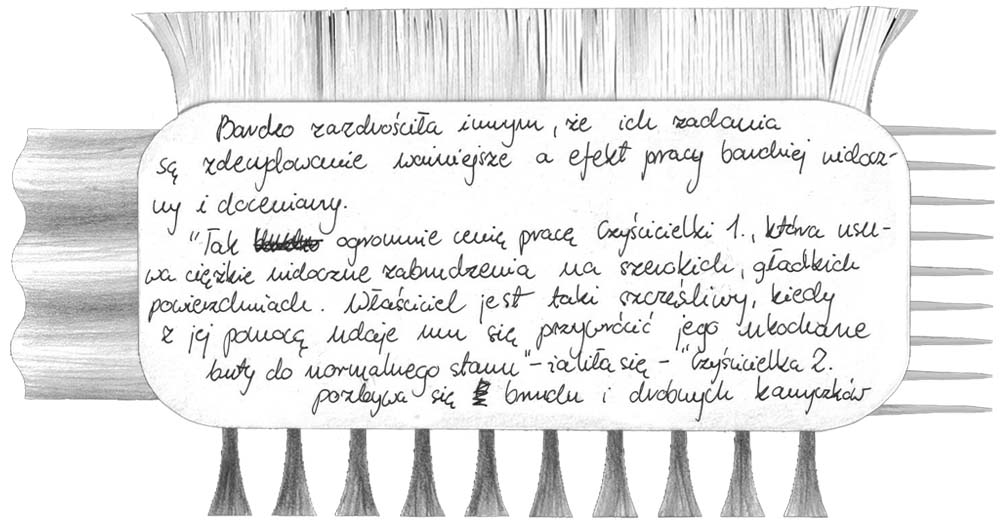 Bardzo zazdrościła innym, że ich zadania
są zdecydowanie ważniejsze a efekt pracy bardziej widocz-
ny i doceniany.
"Tak ogromnie cenię pracę Czyścicielki 1., która usu-
wa ciężkie widoczne zabrudzenia na szerokich, gładkich
powierzchniach. Właściciel jest taki szczęśliwy, kiedy
z jej pomocą udaje mu się przywrócić jego ukochane
buty do normalnego stanu" - żaliła się - "Czyścicielka 2.
pozbywa się brudu i drobnych kamyczków